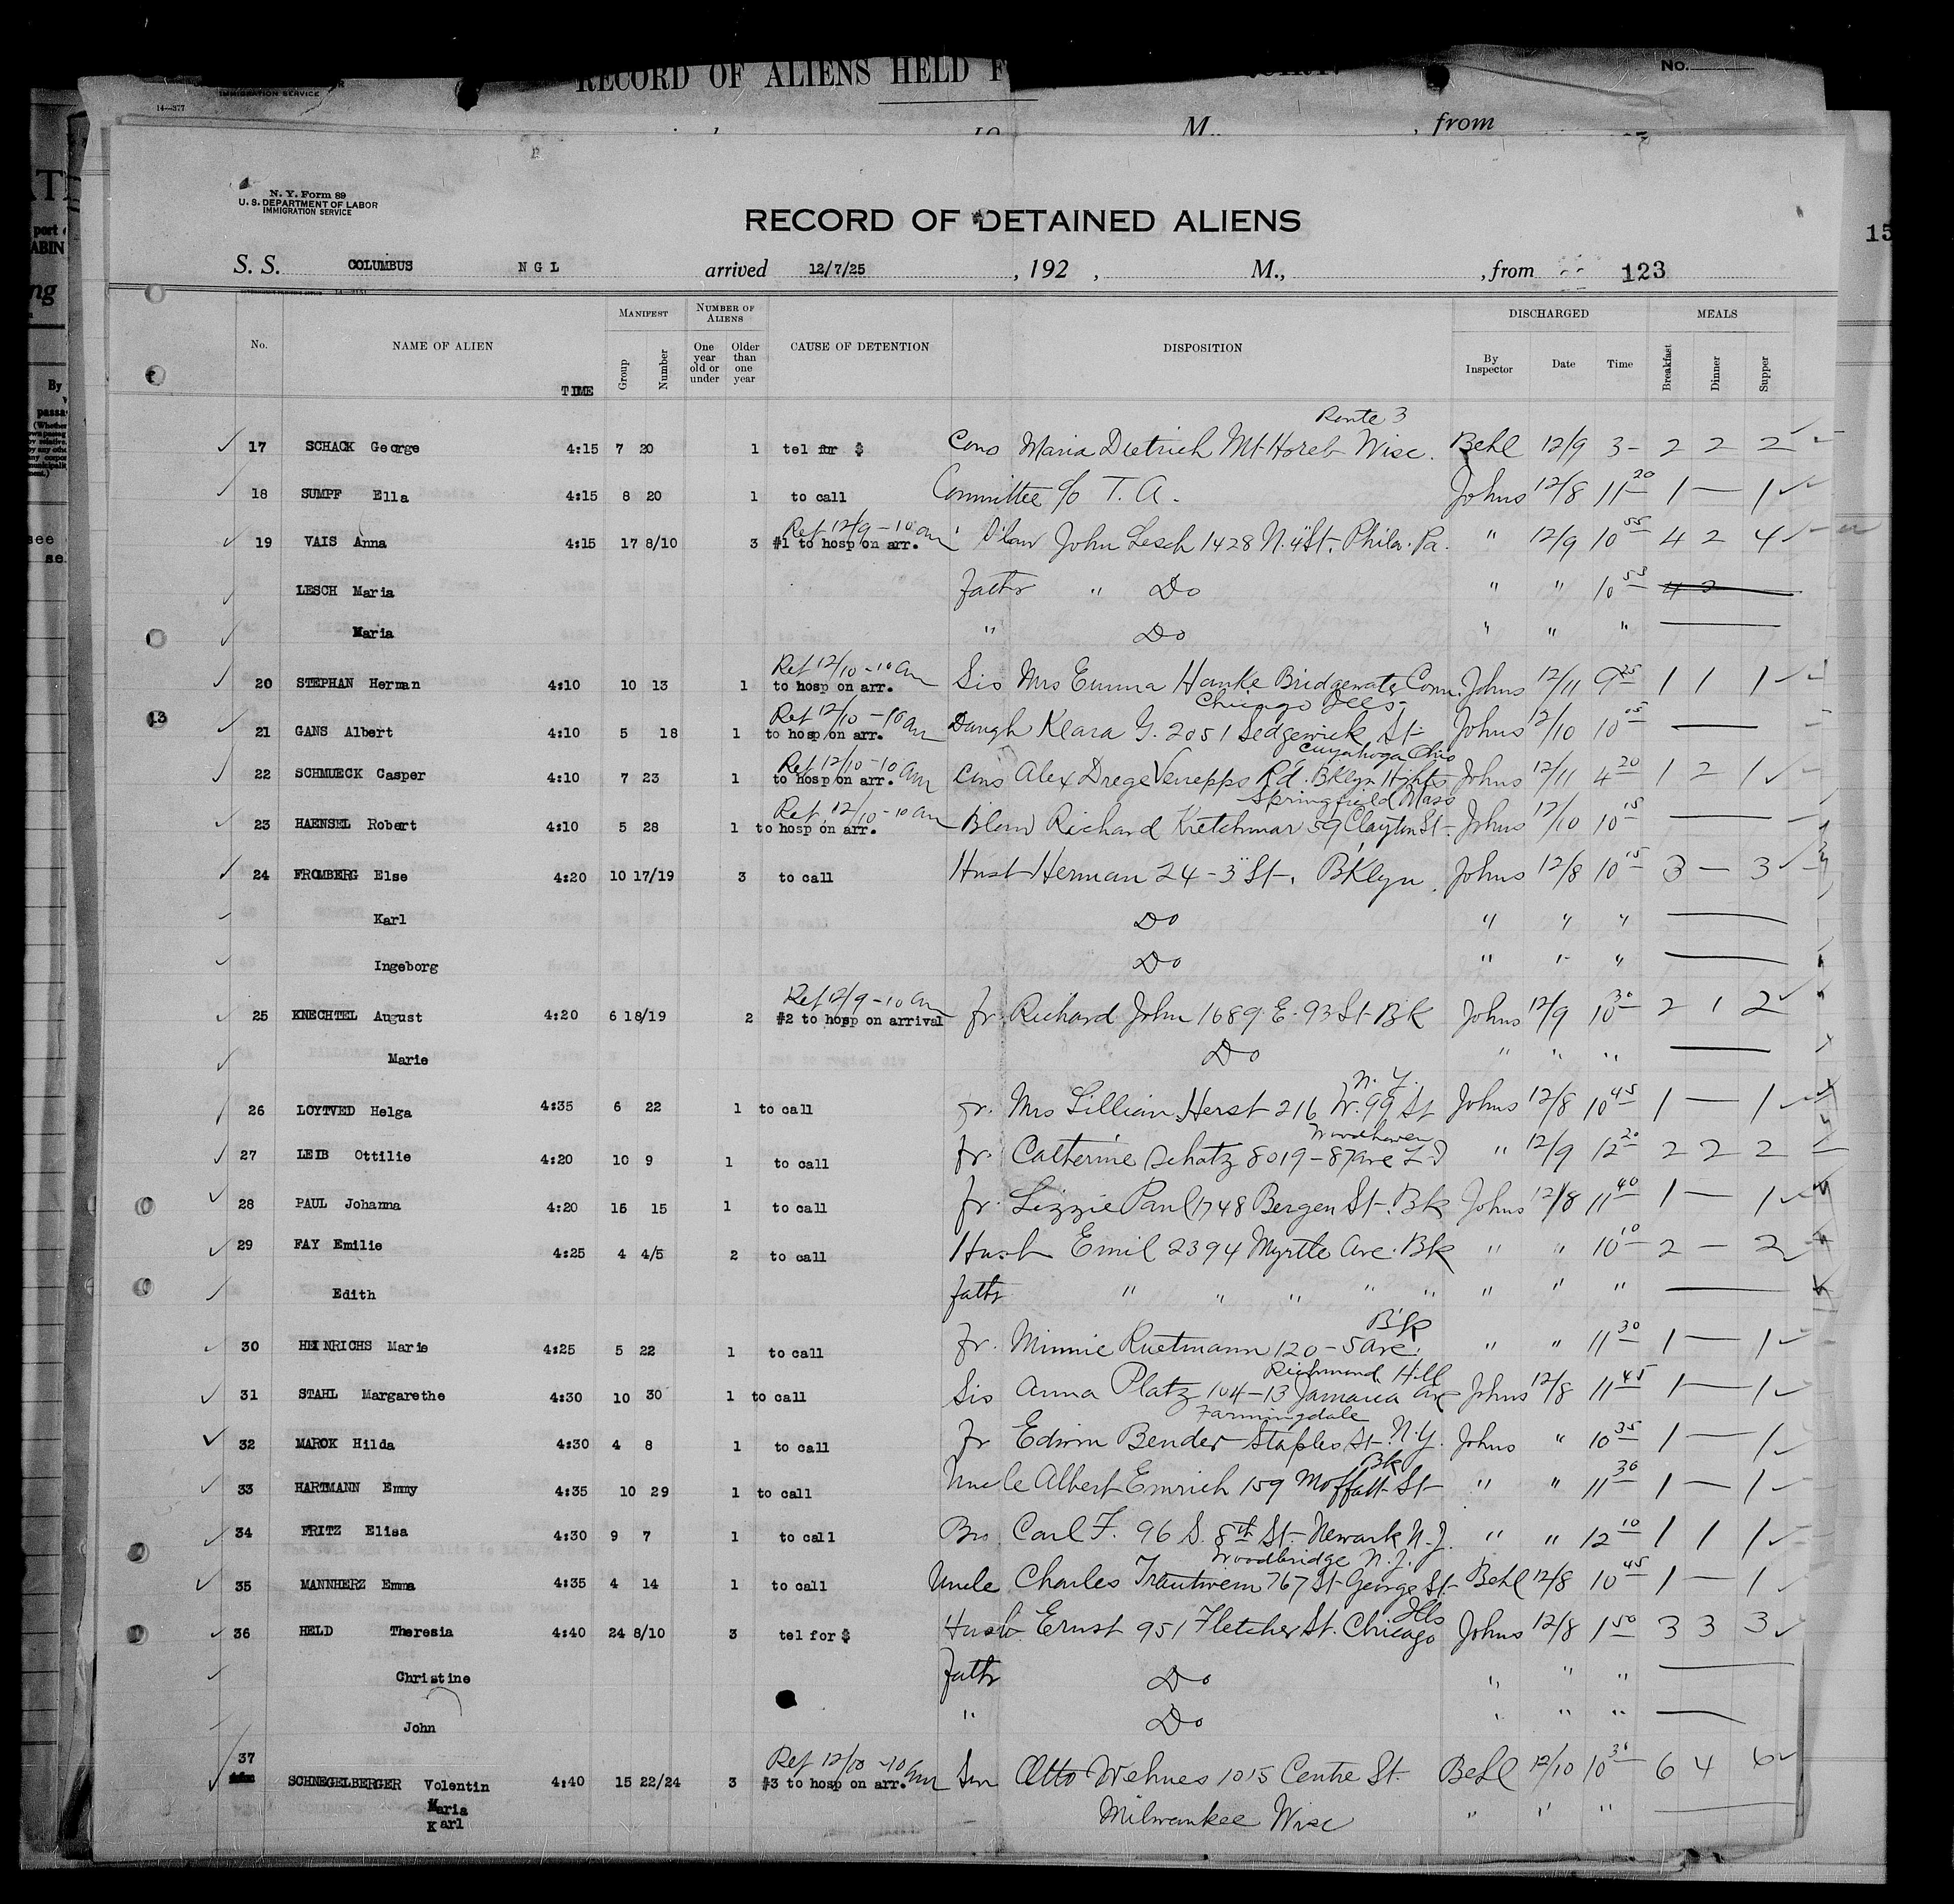 RECORD OF ALIENS HELD F
No.
IMMIGRATION SERVICE
14—377
M. , from
N. Y. Form 89
U. S. DEPARTMENT OF LABOR
IMMIGRATION SERVICE
RECORD OF DETAINED ALIENS
15
S. S. COLUMBUS N G L arrived 12/7/25 , 192 , M., , from 123
MANIFEST NUMBER OF ALIENS DISCHARGED MEALS
No. NAME OF ALIEN TIME Group Number One year old or under Older than one year CAUSE OF DETENTION DISPOSITION By Inspector Date Time Breakfast Dinner Supper
Route 3
17 SCHACK George 4:15 7 20 1 tel for $ Cons Maria Dietrich Mt Horeb Wisc. Behl 12/9 3- 2 2 2
18 SUMPF Ella 4:15 8 20 1 to call Committee c/o T. A. Johns 12/8 11 20 1 — 1
Ret 12/9 - 10 am
19 VAIS Anna 4:15 17 8/10 3 #1 to hosp on arr. John Lesch 1428 N. 4 St. Phila. Pa. " 12/9 10 55 4 2 4
LESCH Maria Fathr " Do " " 10 53
Maria " Do " " "
Ret 12/10 - 10 am
20 STEPHAN Herman 4:10 10 13 1 to hosp on arr. Sis Mrs Emma Hanke Bridgewater Conn. Johns 12/11 9 25 1 1 1
Ret 12/10 - 10 am Chicago Ills-
21 GANS Albert 4:10 5 18 1 to hosp on arr. Daugh Klara G. 2051 Sedgewick St Johns 12/10 10 15 —
Ret 12/10 - 10 am Cuyahoga Ohio
22 SCHMUECK Casper 4:10 7 23 1 to hosp on arr. Cons Alex Drege Rd. Bklyn Hghts Johns 12/11 4 20 1 2 1
Ret 12/10 - 10 am Springfield Mass
23 HAENSEL Robert 4:10 5 28 1 to hosp on arr. Blaw Richard Kretchmar 59 Clayton St- Johns 12/10 10 15 —
24 FROMBERG Else 4:20 10 17/19 3 to call Husb Herman 24 - 3 St, BKlyn. Johns 12/8 10 15 3 — 3
Karl Do " " " —
Ingeborg Do " " " —
Ret 12/9 - 10 am
25 KNECHTEL August 4:20 6 18/19 2 #2 to hosp on arrival fr. Richard John 1689 E. 93 St BK Johns 12/9 10 30 2 1 2
Marie Do " " " —
N. Y.
26 LOYTVED Helga 4:35 6 22 1 to call fr. Mrs Lillian Herst 216 W. 99 St Johns 12/8 10 45 1 — 1
Woodhaven
27 LEIB Ottilie 4:20 10 9 1 to call fr. Catherine Schatz 8019 - 87 Ave L I " 12/9 12 20 2 2 2
28 PAUL Johanna 4:20 16 15 1 to call fr. Lizzie Paul 1748 Bergen St. Bk Johns 12/8 11 40 1 — 1
29 FAY Emilie 4:25 4 4/5 2 to call Husb Emil 2394 Myrtle Ave. Bk " " 10 10 2 — 2
Edith fathr " " " " " " " " —
Bk
30 HEINRICHS Marie 4:25 5 22 1 to call fr. Minnie Ruetmann 120 - 5 Ave. " " 11 30 1 — 1
Richmond Hill
31 STAHL Margarethe 4:30 10 30 1 to call Sis Anna Platz 104-13 Jamaica Ave Johns 12/8 11 45 1 — 1
Farmingdale
32 MAROK Hilda 4:30 4 8 1 to call Fr Edwin Bender Staples St- N.Y. Johns " 10 35 1 — 1
Bk
33 HARTMANN Emmy 4:35 10 29 1 to call Uncle Albert Emrich 159 Moffatt St " " 11 30 1 — 1
34 FRITZ Elisa 4:30 9 7 1 to call Bro Carl F. 96 S. 8th St- Newark N. J. " " 12 10 1 1 1
Woodbridge N. J.
35 MANNHERZ Emma 4:35 4 14 1 to call Uncle Charles Trautwein 767 St George St- Behl 12/8 10 45 1 — 1
Ills
36 HELD Theresia 4:40 24 8/10 3 tel for $ Husb. Ernst 951 Fletcher St. Chicago Johns 12/8 1 50 3 3 3
Christine Fathr Do " " " —
John " Do " " " —
Ret 12/10 - 10 am
37 SCHNEGELBERGER Volentin 4:40 15 22/24 3 #3 to hosp on arr. Otto Wehnes 1015 Centre St. Behl 12/10 10 6 4 6
Maria Milwaukee Wisc " " " —
Karl